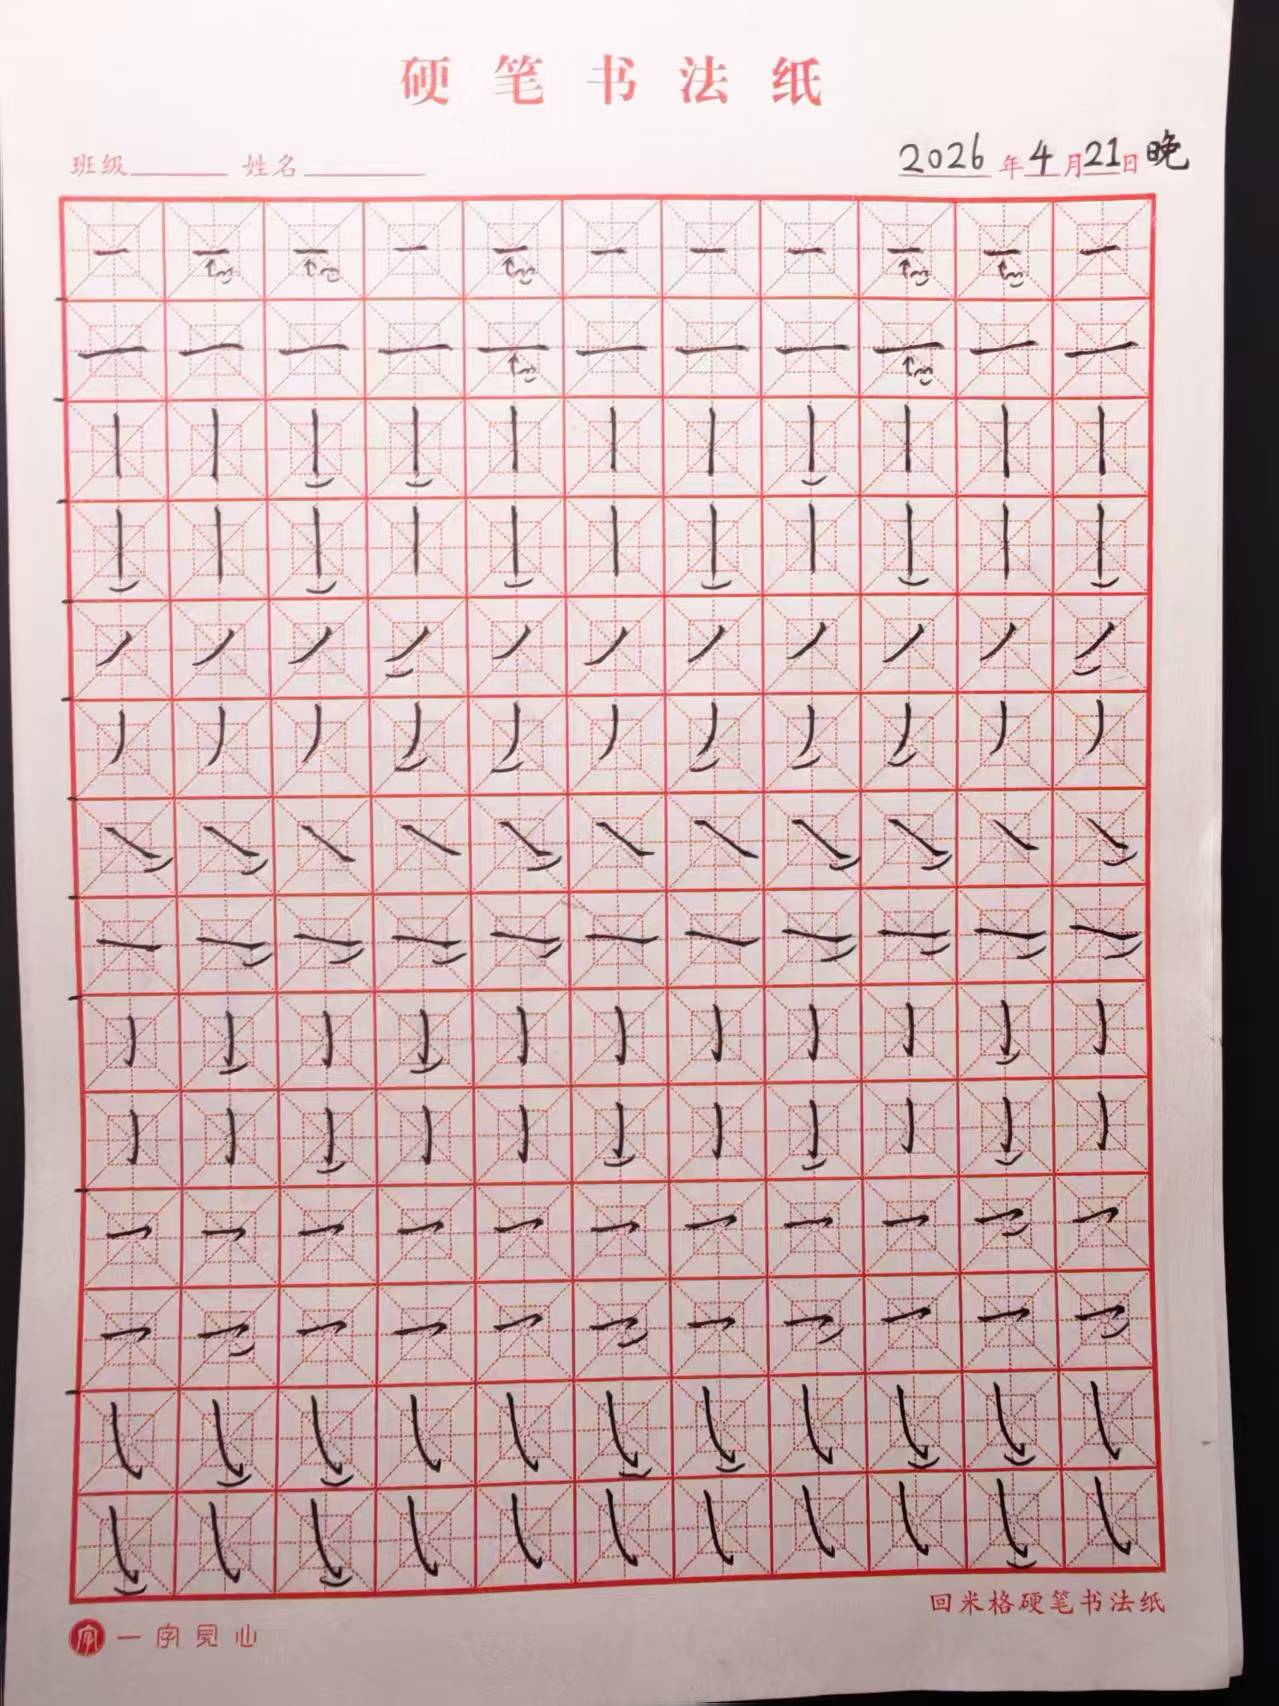 硬笔书法纸
班级 姓名 2026年4月21日晚
回米格硬笔书法纸
字 一字见心